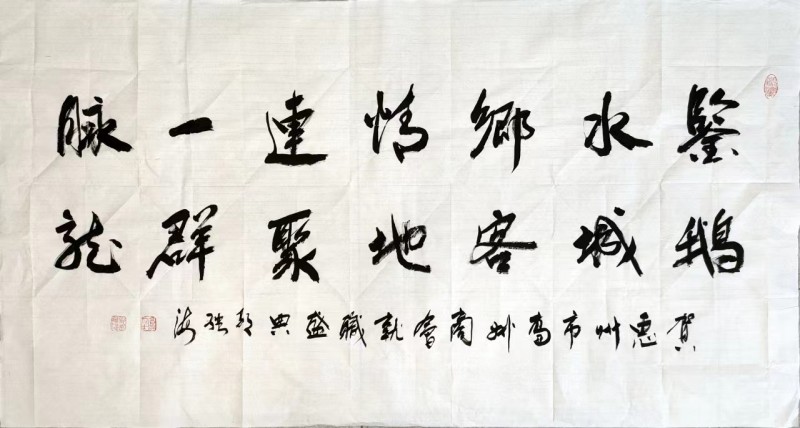 鑒水鄉情連一脉
鵝城客地聚群龍
賀惠州市高州商會就職盛典